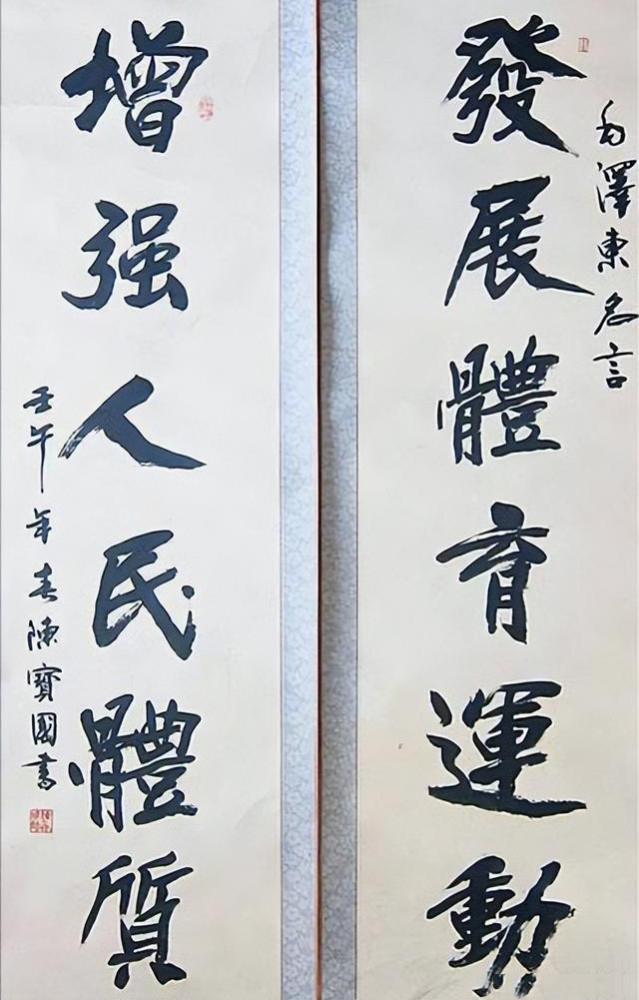 毛澤東名言
發展體育運動
增强人民體质
壬午年春陳寶國書